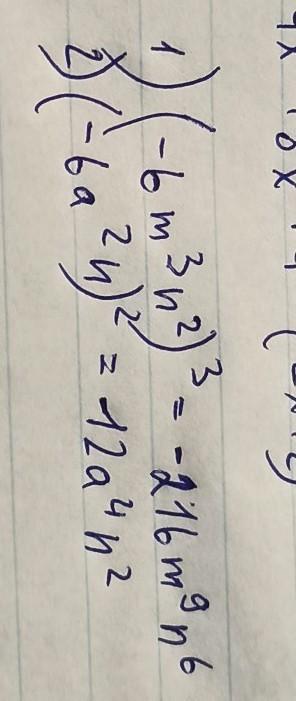 1) (-6m³n²)³ = -216m⁹n⁶
2) (-6a²n)² = -12a⁴n²